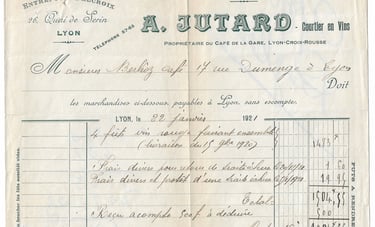 ENTRE
26, Quai de Serin
LYON
TÉLÉPHONE
A. JUTARD - Courtier en Vins
PROPRIÉTAIRE DU CAFÉ DE LA GARE, LYON-CROIX-ROUSSE
Monsieur Berlioz café 17 rue Dumenge à Lyon
Doit
les marchandises ci-dessous, payables à Lyon, sans escompte.
LYON, LE 22 janvier 1921
4 fûts vin rouge faisant ensemble
(livraison du 15 9bre 1920)
Frais divers pour retour de traite
Frais divers et protêt d'une traite
Total
1504.55
Reçu acompte 500f à déduire
500
FUTS A RENDRE